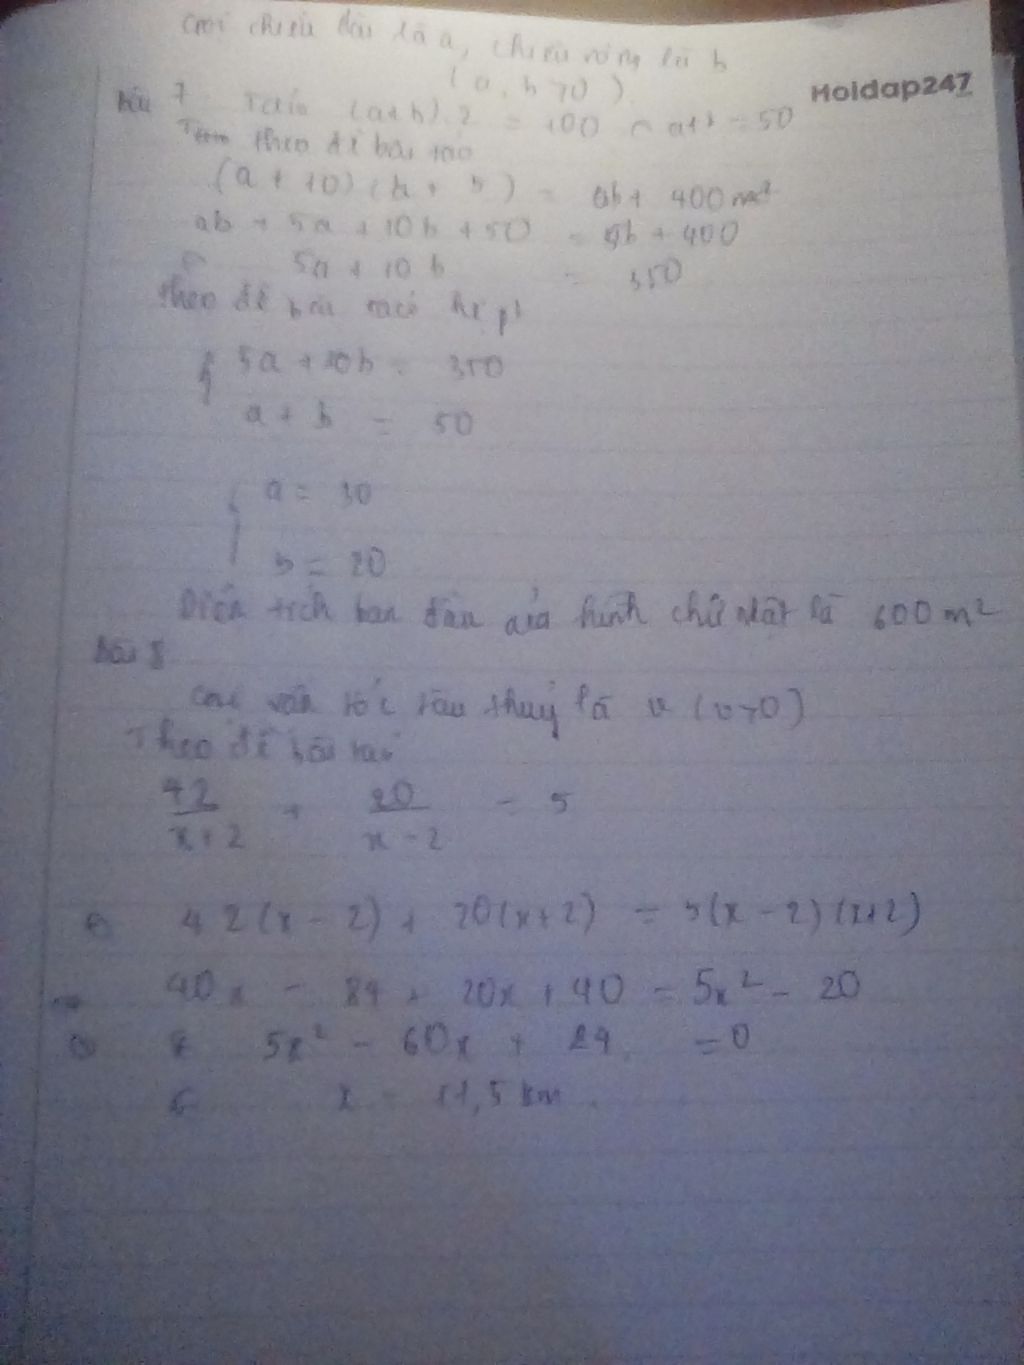 Gọi chiều dài là a, chiều rộng là b
(a, b > 0).
Hoidap247
Bài 7 Ta có (a+b).2 = 100 a+b = 50
Theo đề bài ta có
(a + 10)(b + 5) = ab + 400 m²
ab + 5a + 10b + 50 = ab + 400
5a + 10b = 350
Theo đề bài ta có hệ pt
5a + 10b = 350
a + b = 50
a = 30
b = 20
Diện tích ban đầu của hình chữ nhật là 600 m²
Bài 8
Gọi vận tốc tàu thuỷ là v (v>0)
Theo đề bài ta có
42/(x+2) + 20/(x-2) = 5
42(x-2) + 20(x+2) = 5(x-2)(x+2)
40x - 84 + 20x + 40 = 5x² - 20
5x² - 60x + 24 = 0
x = 11,5 km